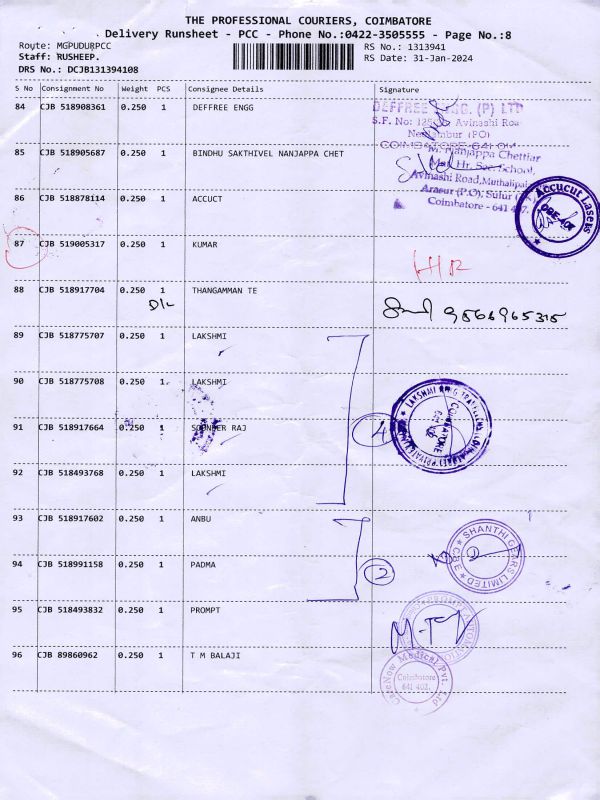 THE PROFESSIONAL COURIERS, COIMBATORE
Delivery Runsheet - PCC - Phone No.:0422-3505555 - Page No.:8
Route: MGPUDURPCC RS No.: 1313941
Staff: RUSHEEP. RS Date: 31-Jan-2024
DRS No.: DCJB131394108
S No Consignment No Weight PCS Consignee Details Signature
84 CJB 518908361 0.250 1 DEFFREE ENGG
DEFFREE (P) LTD
S.F. No: Avinashi Road
(PO)
COIMBATORE
85 CJB 518905687 0.250 1 BINDHU SAKTHIVEL NANJAPPA CHET
M. Nanjappa Chettiar
Mat. Hr. Sec. School,
Avinashi Road, Muthalipa
Arasur (P.O), Sulur
Coimbatore - 641 407.
86 CJB 518878114 0.250 1 ACCUCT
Accucut Lasers
CBE-407
87 CJB 519005317 0.250 1 KUMAR
88 CJB 518917704 0.250 1 THANGAMMAN TE
D/L
9566965315
89 CJB 518775707 0.250 1 LAKSHMI
90 CJB 518775708 0.250 1 LAKSHMI
91 CJB 518917664 0.250 1 SOUNDER RAJ
4
COIMBATORE
92 CJB 518493768 0.250 1 LAKSHMI
93 CJB 518917602 0.250 1 ANBU
SHANTHI GEARS LIMITED
CBE
1
94 CJB 518991158 0.250 1 PADMA
2
95 CJB 518493832 0.250 1 PROMPT
96 CJB 89860962 0.250 1 T M BALAJI
CareNow Medical Pvt. Ltd
Coimbatore
641 402.